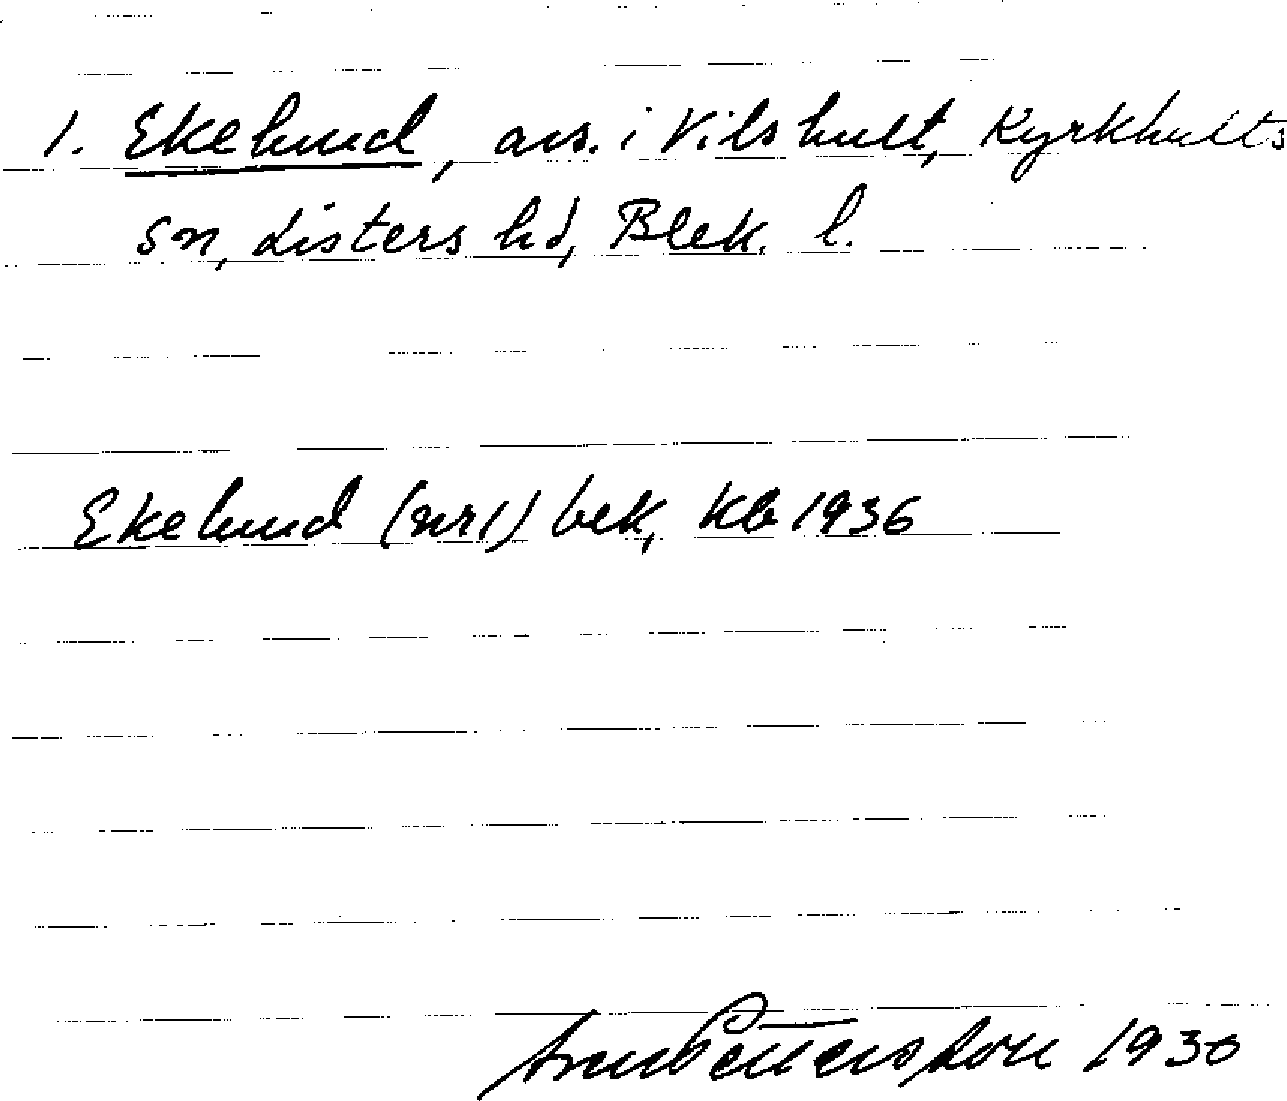 1. Ekelund, avs. i Vilshult, Kyrkhults
sn, Listers hd, Blek. l.
Ekelund (nr 1) bek, Kb 1936
Pettersson 1930